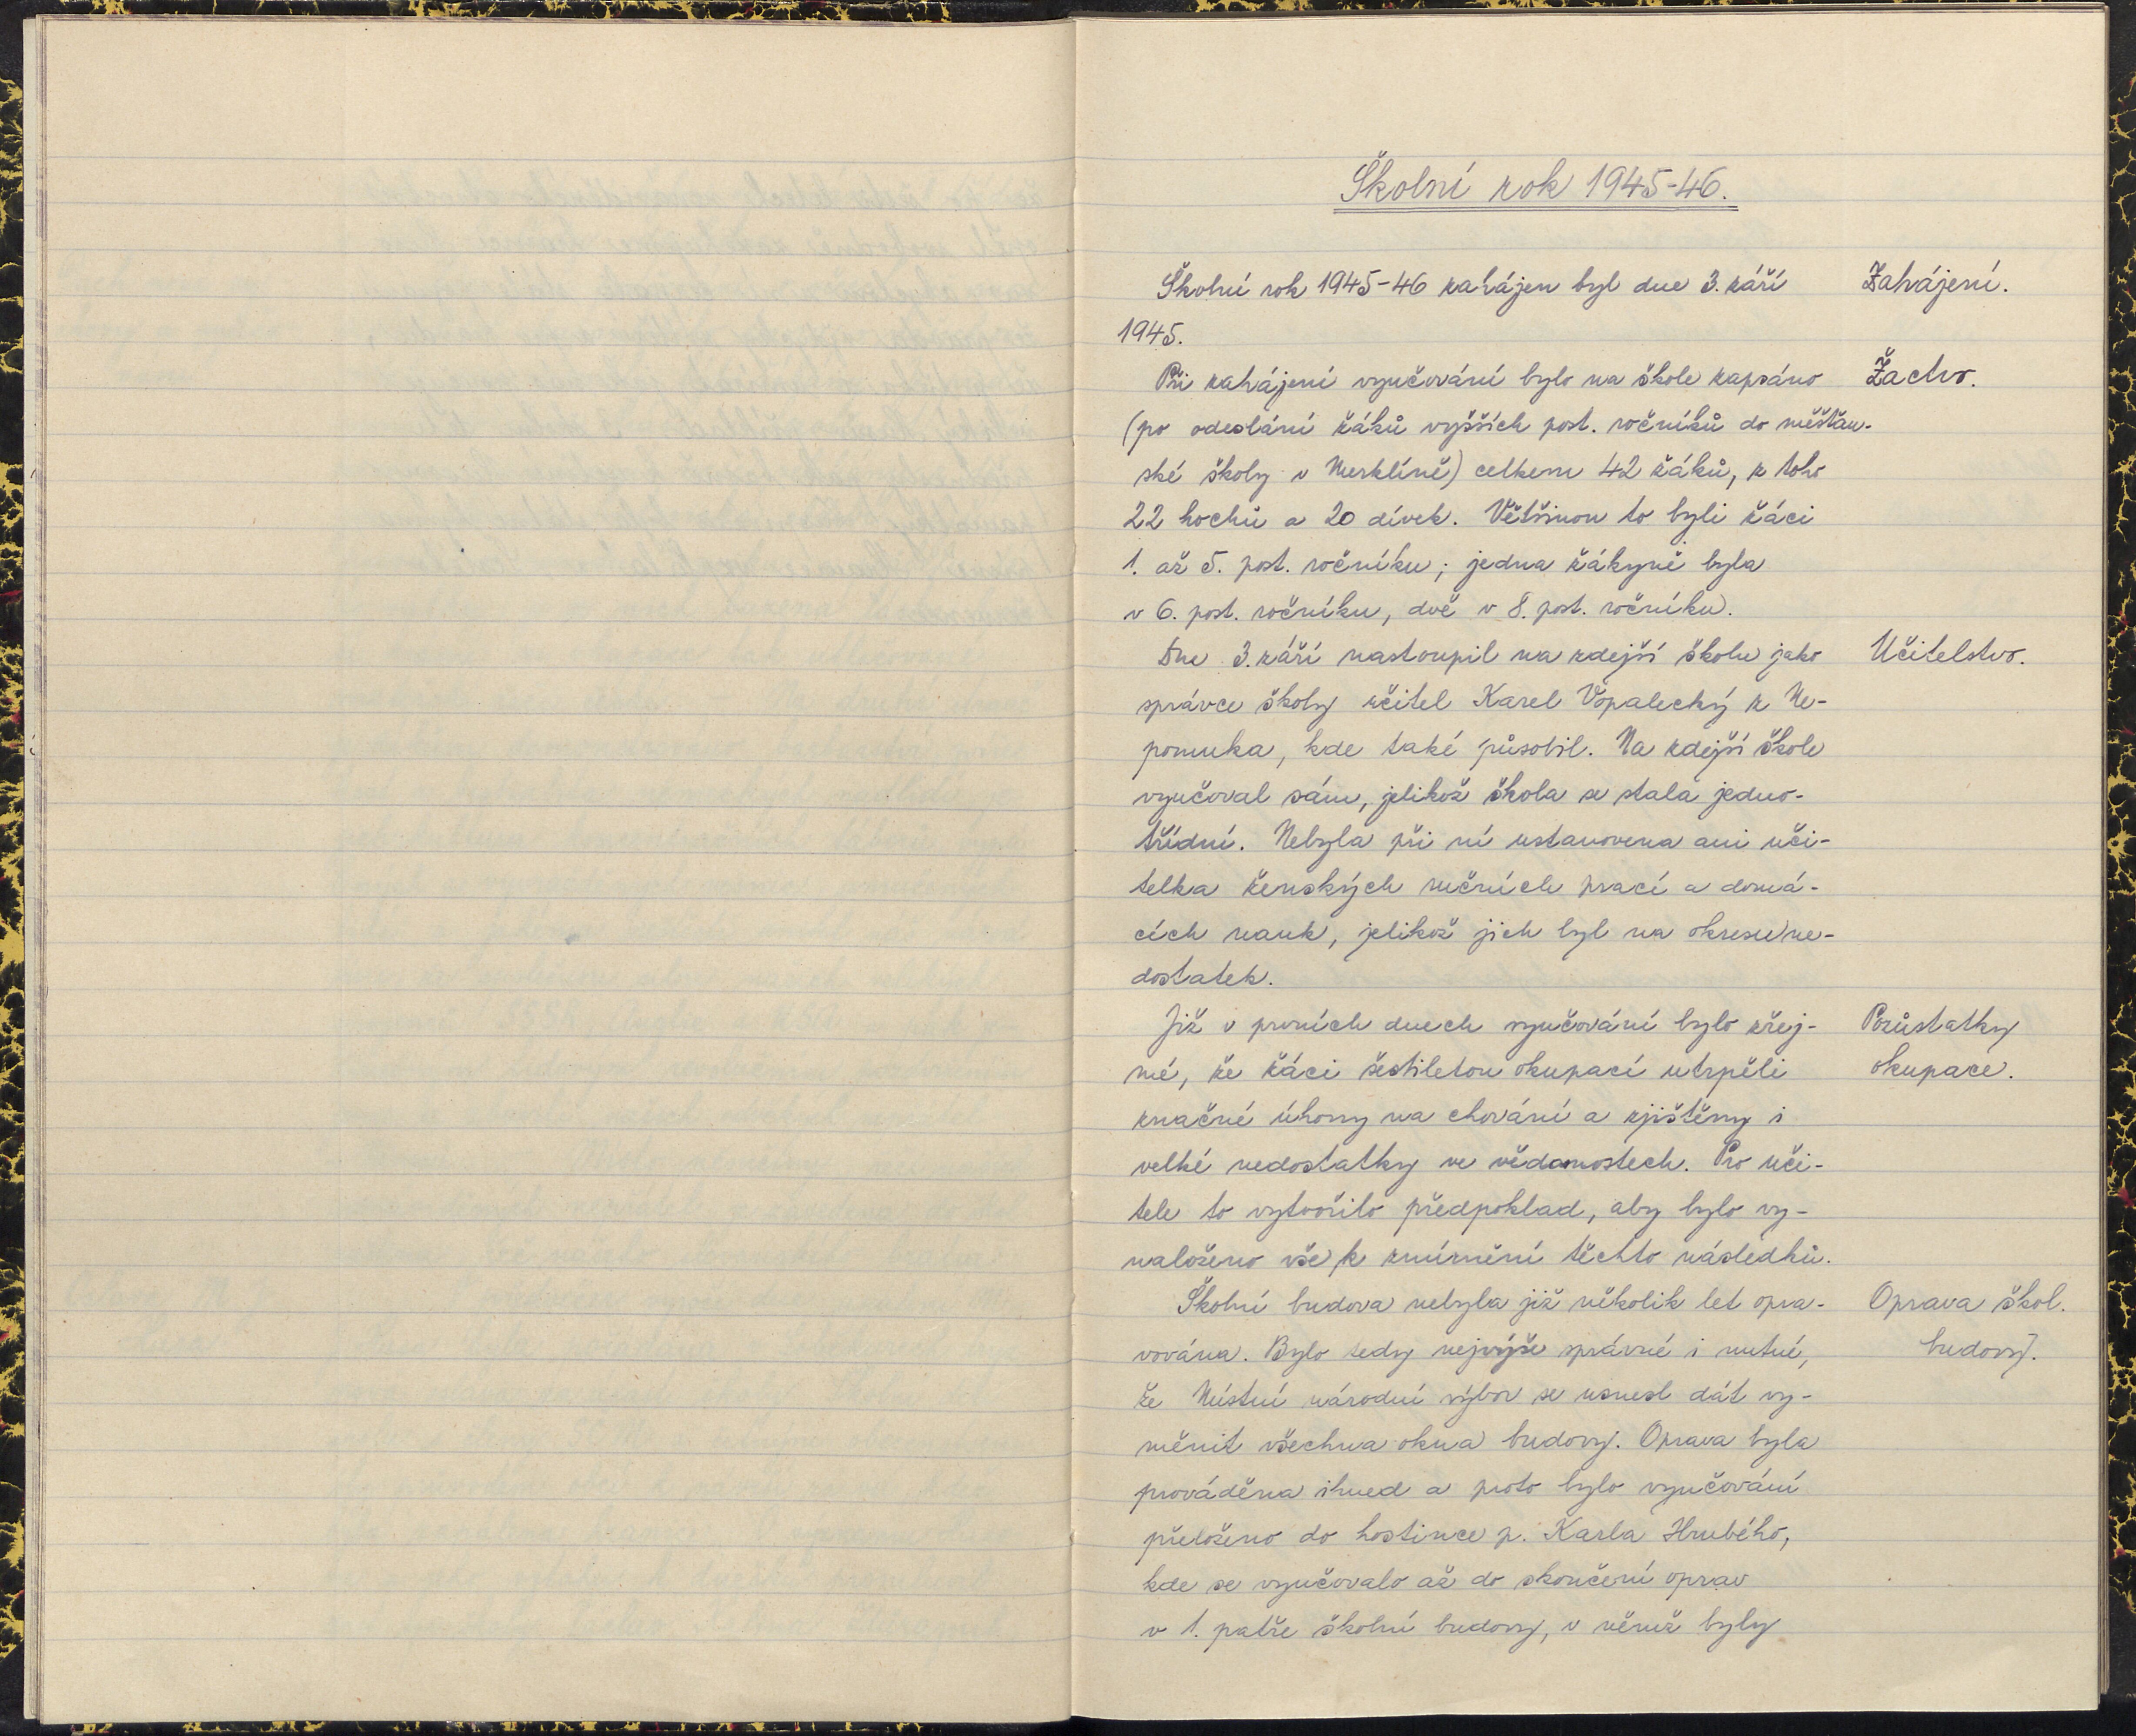 Školní rok 1945-46.
Školní rok 1945-46 zahájen byl dne 3. září
Zahájení.
1945.
Při zahájení vyučování bylo na škole zapsáno
Žactvo.
(po odeslání žáků vyšších post. ročníků do měšťan-
ské školy v Merklíně) celkem 42 žáků, z toho
22 hochů a 20 dívek. Většinou to byli žáci
1. až 5. post. ročníku; jedna žákyně byla
v 6. post. ročníku, dvě v 8. post. ročníku.
Dne 3. září nastoupil na zdejší školu jako
Učitelstvo.
správce školy učitel Karel Vopalecký z Ne-
pomuka, kde také působil. Na zdejší škole
vyučoval sám, jelikož škola se stala jedno-
třídní. Nebyla při ní ustanovena ani uči-
telka ženských ručních prací a domá-
cích nauk, jelikož jich byl na okresu ne-
dostatek.
Již v prvních dnech vyučování bylo zřej-
Pozůstatky
mé, že žáci šestiletou okupací utrpěli
okupace.
značné úhony na chování a zjištěny i
velké nedostatky ve vědomostech. Pro uči-
tele to vytvořilo předpoklad, aby bylo vy-
naloženo vše k zmírnění těchto následků.
Školní budova nebyla již několik let opra-
Oprava škol.
vována. Bylo tedy nejvýše správné i nutné,
budovy.
že Místní národní výbor se usnesl dát vy-
měnit všechna okna budovy. Oprava byla
prováděna ihned a proto bylo vyučování
přeloženo do hostince p. Karla Hrubého,
kde se vyučovalo až do skončení oprav
v 1. patře školní budovy, v němž byly